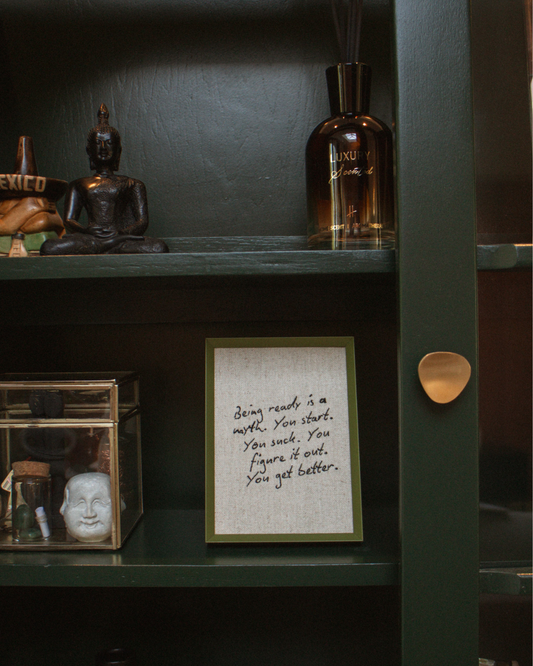 MEXICO
LUXURY
Being ready is a
myth. You start.
You suck. You
figure it out.
You get better.